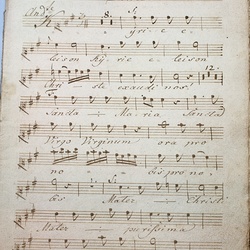 And:
8. yrie e
leison Kyrie eleison
Christe exaudi nos. 12.
Sancta Maria Sancta
Virgo Virginum ora pro
no - bis pro no -
bis Mater Christi
Mater purissima